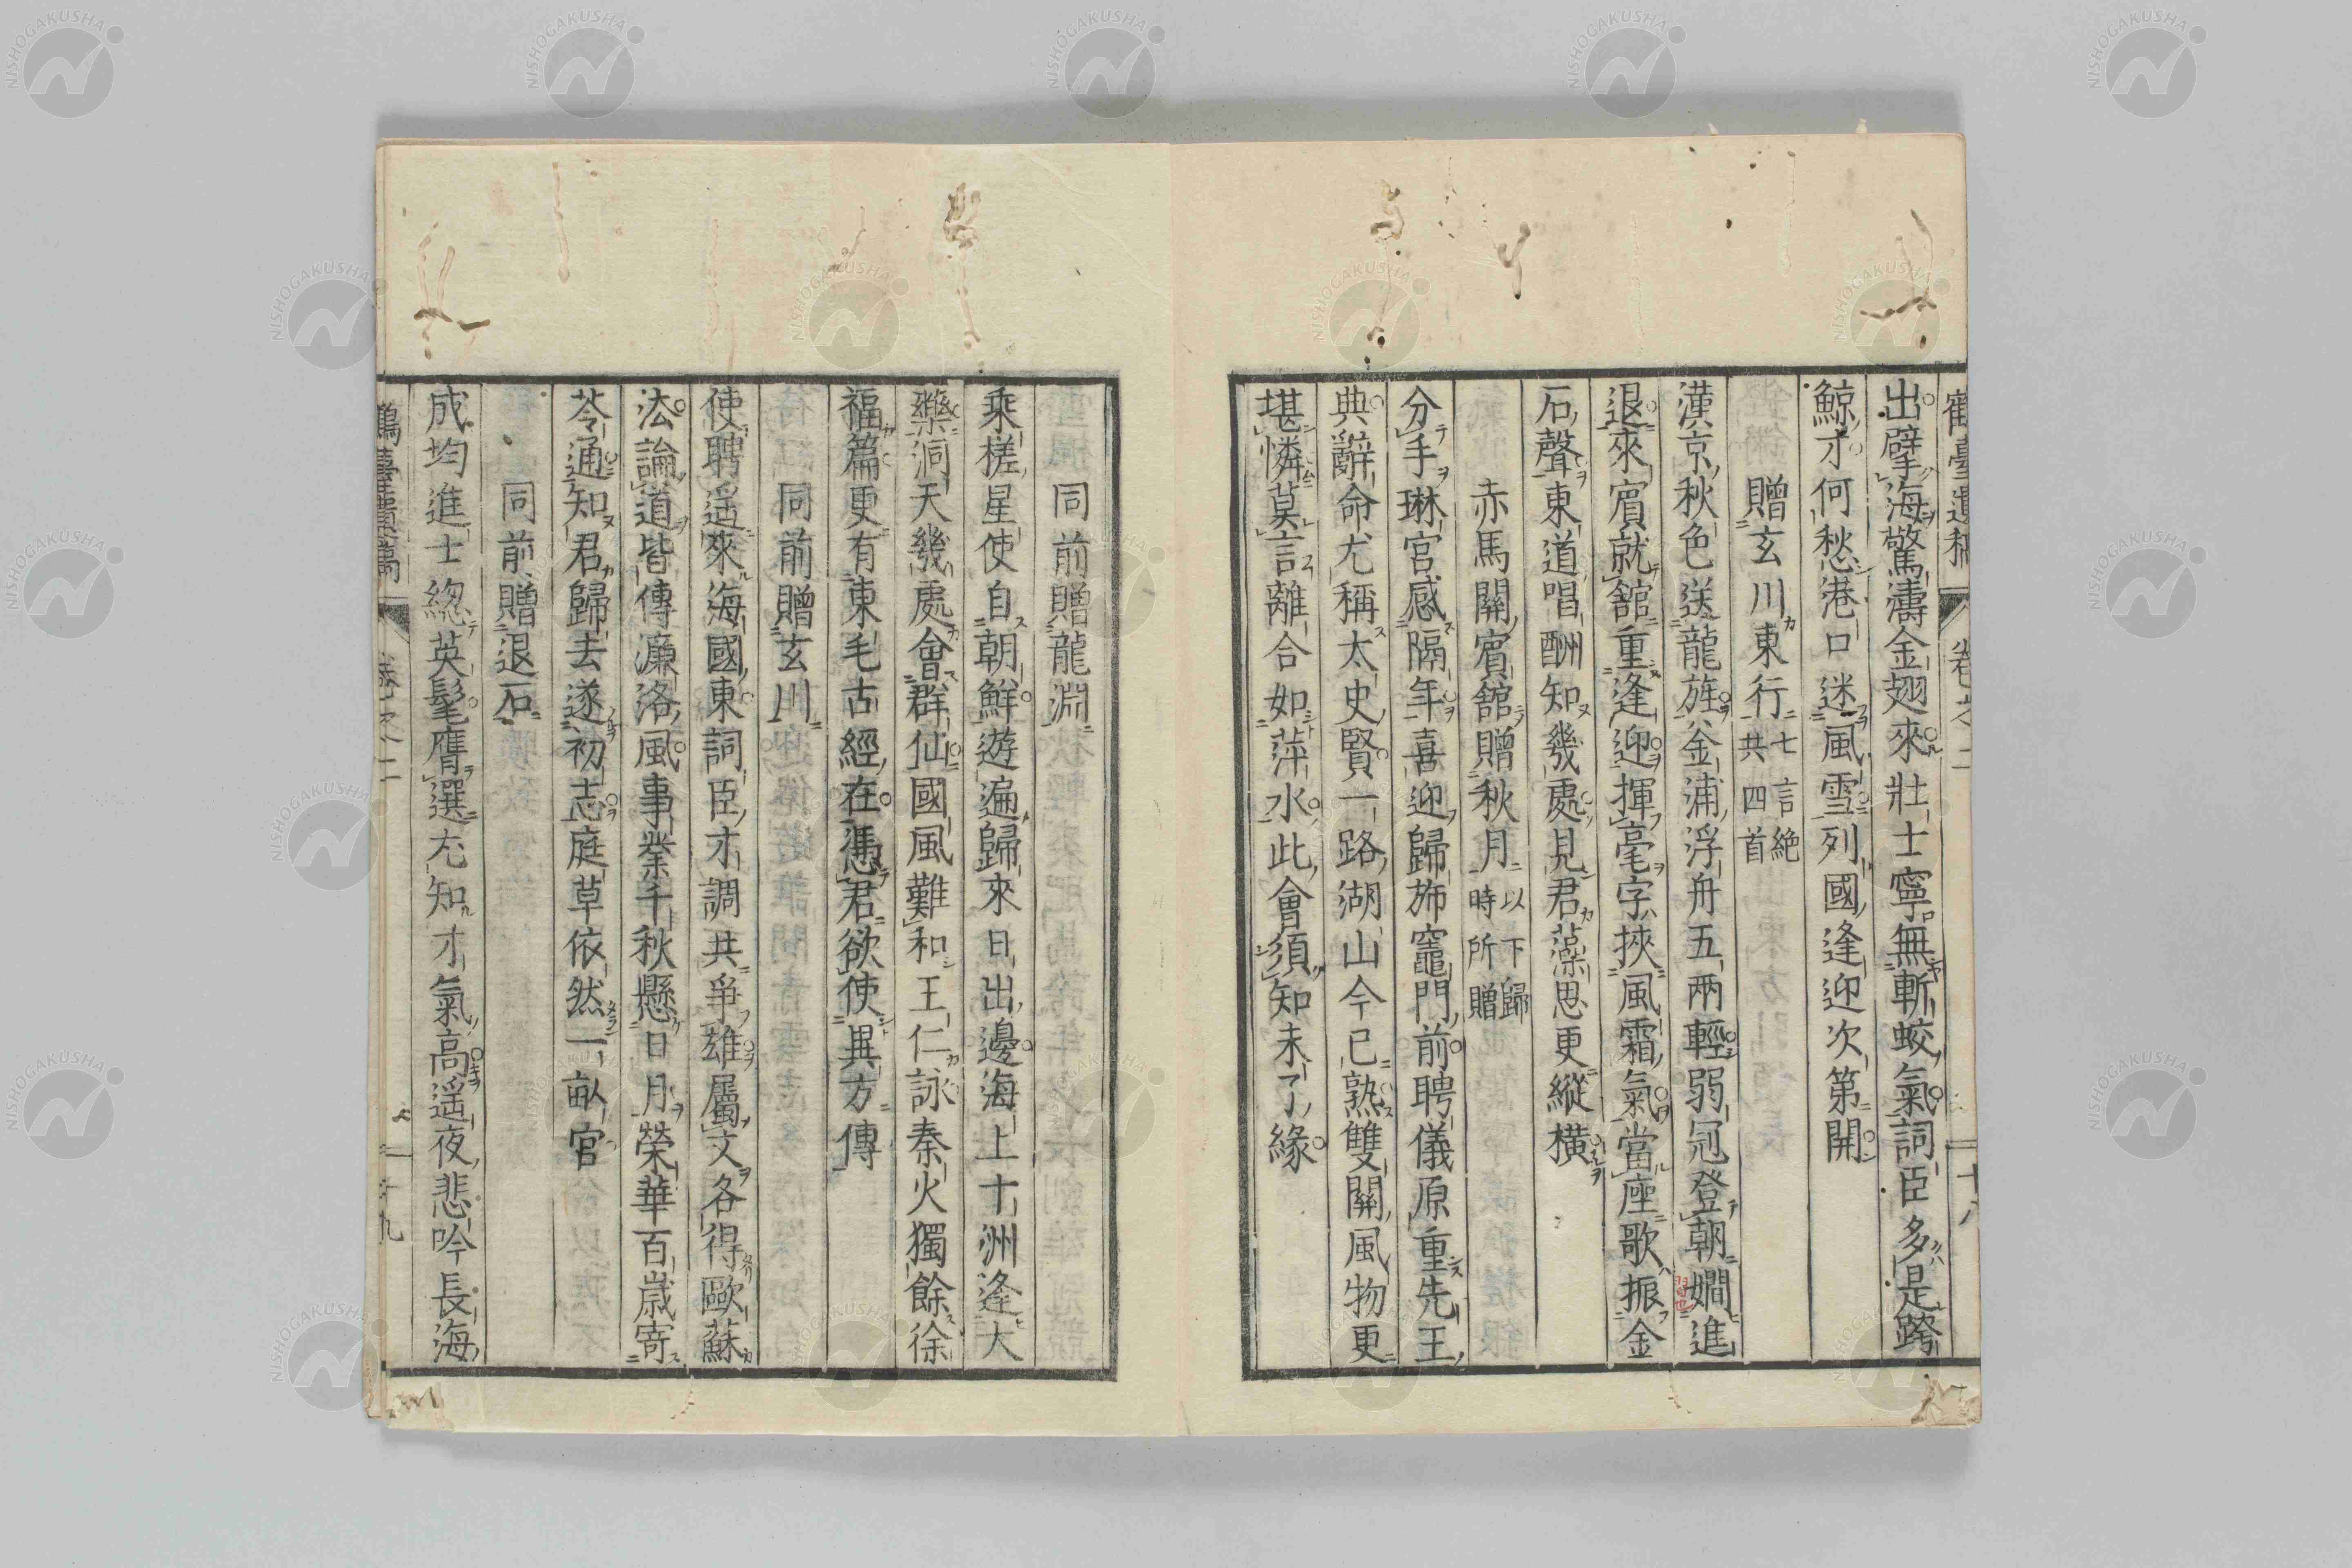 鶴臺遺稿 卷之二 十八
出擘海驚濤金翅來壯士寧無斬蛟氣詞臣多是跨
鯨才何愁港口迷風雪列國逢迎次第開
贈玄川東行七言絶共四首
漢京秋色送龍旌金浦浮舟五兩輕弱冠登朝嫺進
退來賓就舘重逢迎揮毫字挾風霜氣當座歌振金
石聲東道唱酬知幾處見君藻思更縱橫
赤馬關賓舘贈秋月以下歸時所贈
分手琳宮感隔年喜迎歸斾竈門前聘儀原重先王
典辭命尤稱太史賢一路湖山今已熟雙關風物更
堪憐莫言離合如萍水此會須知未了緣
同前贈龍淵
乘槎星使自朝鮮遊遍歸來日出邊海上十洲逢大
藥洞天幾處會群仙國風難和王仁詠秦火獨餘徐
福篇更有東毛古經在憑君欲使異方傳
同前贈玄川
使聘遥來海國東詞臣才調共爭雄屬文各得歐蘇
法論道皆傳濂洛風事業千秋懸日月榮華百歳寄
苓通知君歸去遂初志庭草依然一畝宮
同前贈退石
成均進士総英髦膺選尤知才氣高遥夜悲吟長海
鶴臺遺稿 卷之二 十九
NISHOGAKUSHA